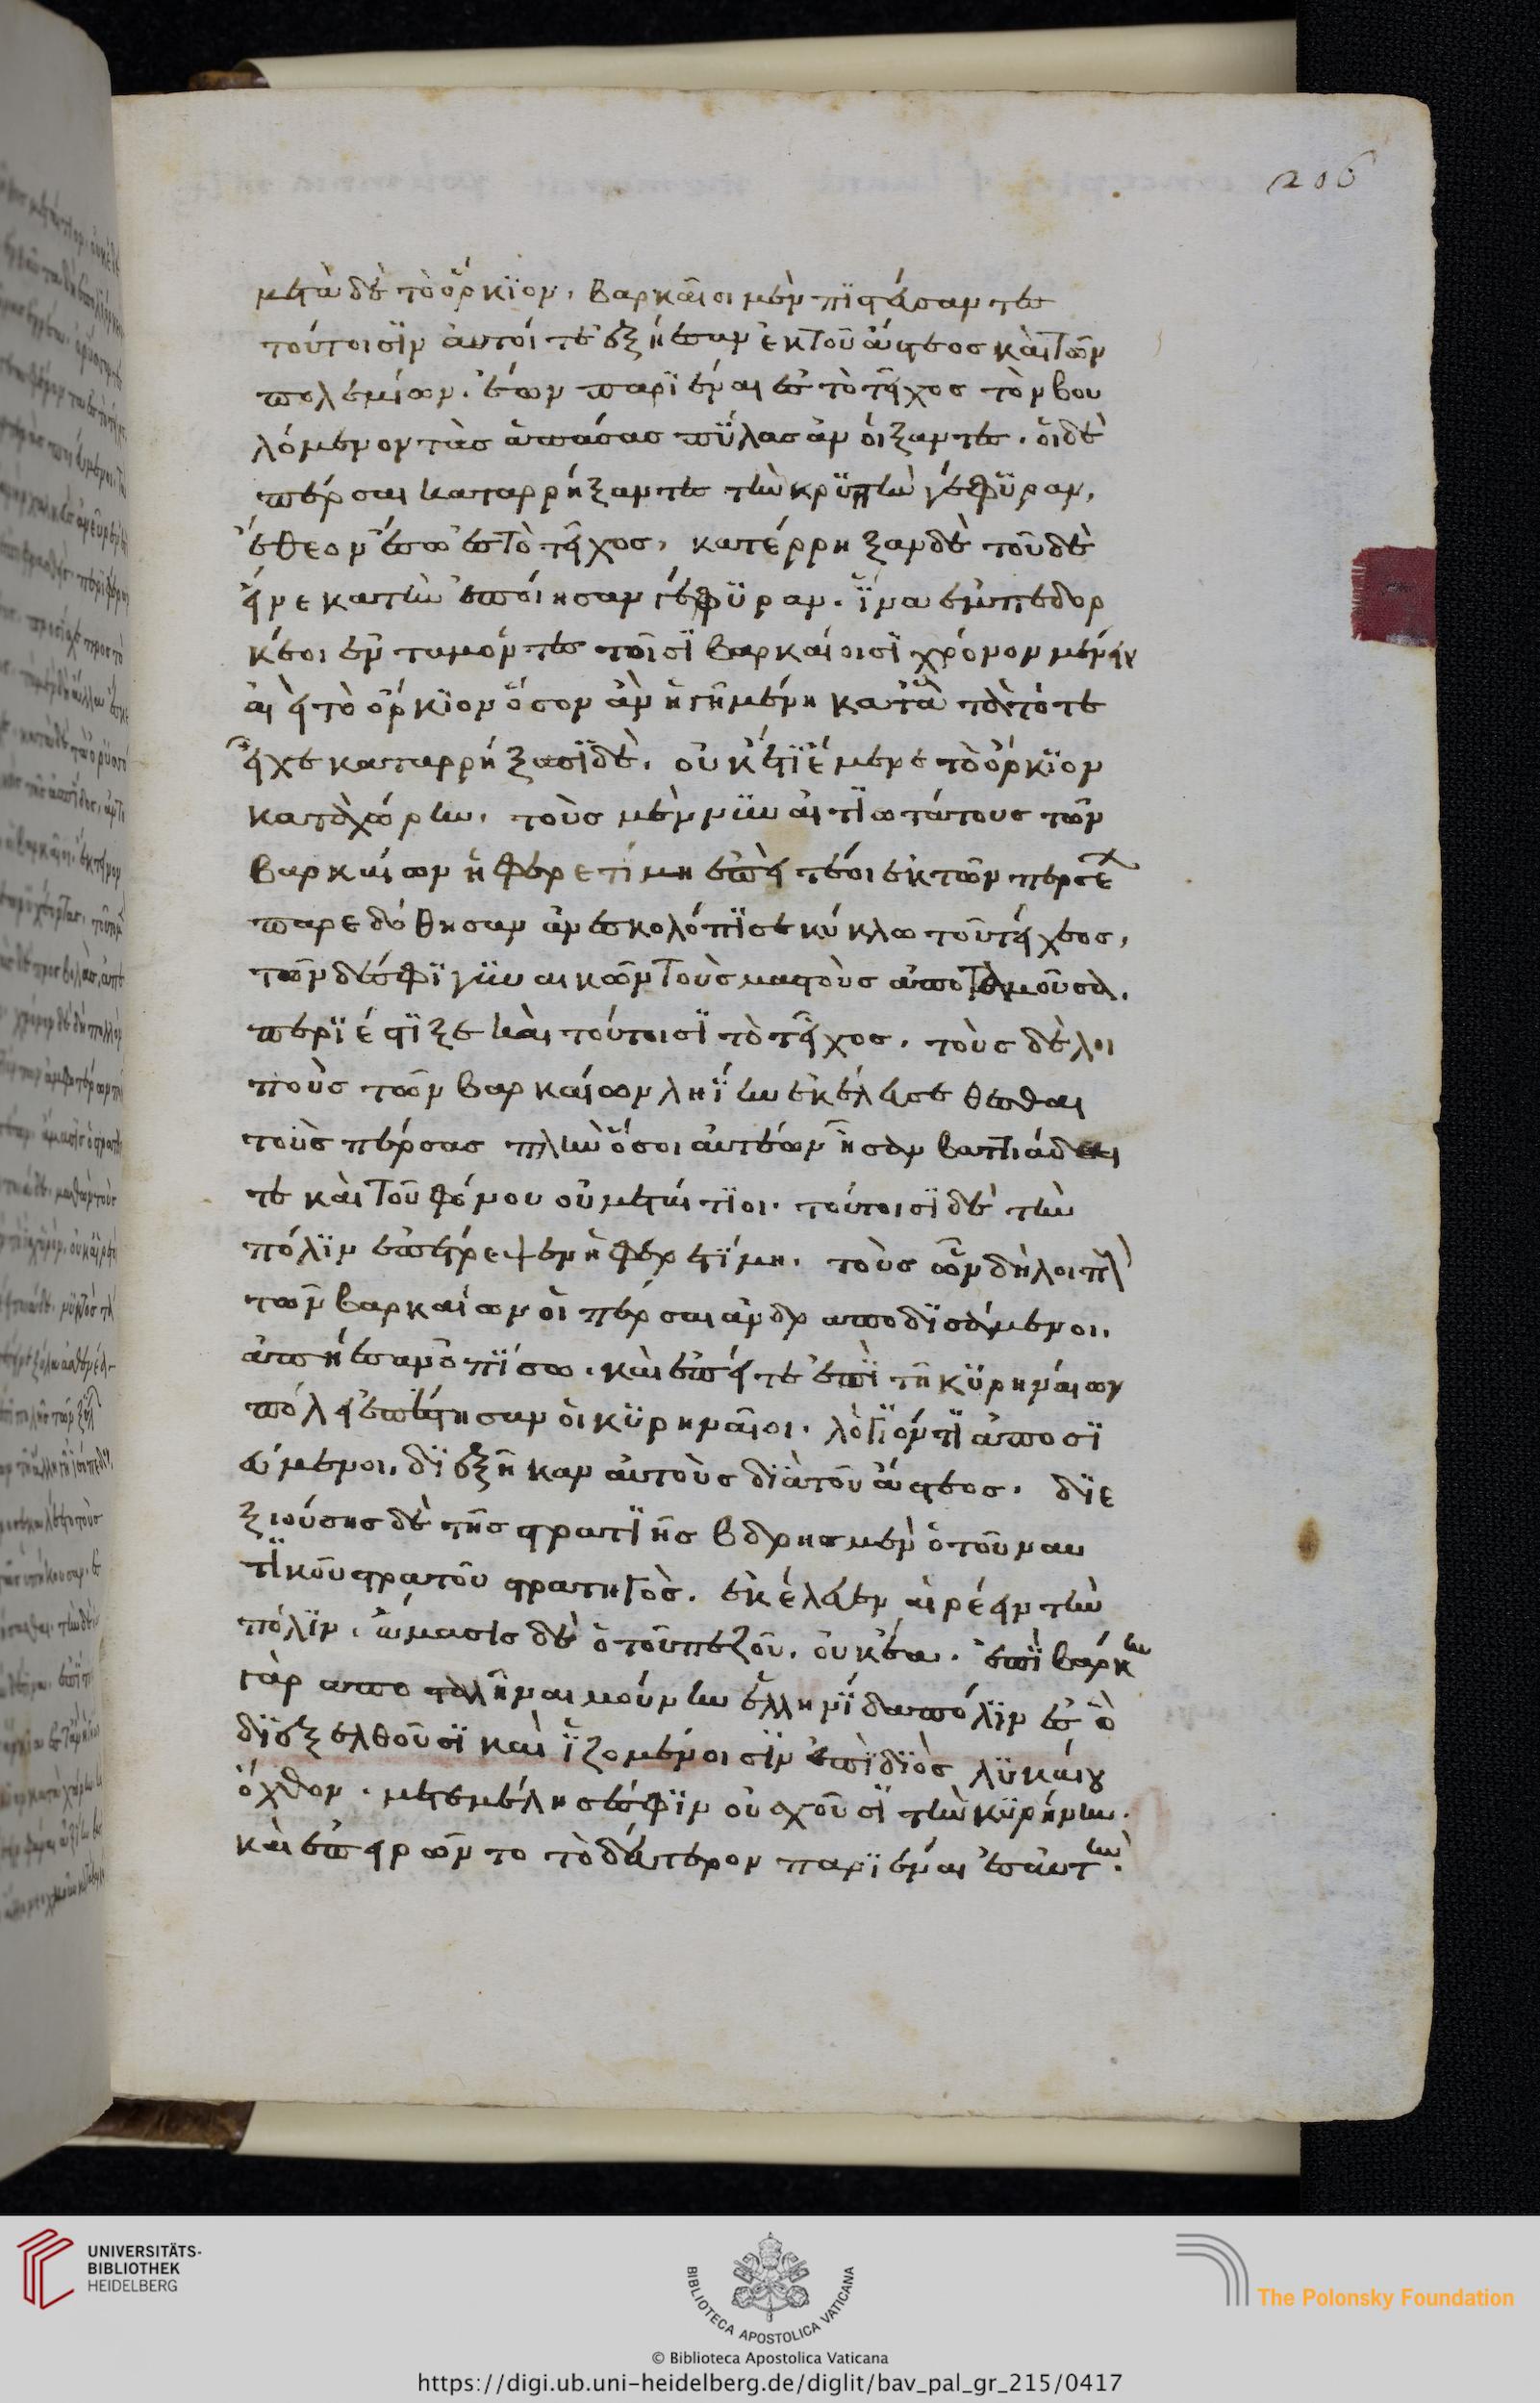 206
μετὰ δὲ τὸ ὅρκϊον, βαρκαῖοι μὲν πϊστεύσαντες
τούτοισϊν αὐτοί τε ἐξήεσαν ἐκ τοῦ ἄστεος καὶ τῶν
πολεμίων. ἐέων παρϊέναι ἐς τὸ τεῖχος τὸν βου
λόμενον τὰς ἁπάσας πύλας ἀνοίξαντες. οἱ δὲ
πέρσαι καταρρήξαντες τὴν κρϋπτὴν γέφϋραν,
ἔθεον ἔσω ἐς τὸ τεῖχος, κατέρρηξαν δὲ τοῦδε
εἵνεκα τὴν ἐποίησαν γέφϋραν. ἵνα ἐμπεδορ
κέοιεν ταμόντες τοῖσϊ βαρκαίοισϊ χρόνον μένειν
αἰεὶ τὸ ὅρκϊον ὅσον ἂν ἡ γῆ μένη κατὰ τὸ τότε
εἶχε καταρρήξασϊ δὲ, οὐκέτϊ ἔμενε τὸ ὅρκϊον
κατὰ χώρην, τοὺς μέν νϋν αἰτϊωτάτους τῶν
βαρκαίων ἡ φερετίμη ἐπεί τέοι ἐκ τῶν περσέ
παρεδόθησαν ἀνεσκολόπϊσε κύκλω τοῦ τείχεος,
τῶν δέ σφϊ γϋναικῶν τοὺς μαστοὺς ἀποταμοῦσα,
περϊέστϊξε καὶ τούτοισϊ τὸ τεῖχος, τοὺς δὲ λοι
ποὺς τῶν βαρκαίων ληΐην ἐκέλευσε θέσθαι
τοὺς πέρσας πλὴν ὅσοι αὐτέων ἦσαν βαττιάδαι
τε καὶ τοῦ φόνου οὐ μεταίτϊοι. τούτοισϊ δὲ τὴν
πόλϊν ἐπέτρεψεν ἡ φερετϊμη. τοὺς ὦν δὴ λοιπ
τῶν βαρκαίων οἱ πέρσαι ἀνδρ αποδϊσάμενοι,
ἀπήεσαν ὀπΐσω. καὶ ἐπεί τε ἐπὶ τῆ κϋρηναίων
πόλει ἐπέστησαν οἱ κϋρηναῖοι. λόγιόν τϊ ἀποσϊ
εύμενοι, δϊεξῆκαν αὐτοὺς δϊὰ τοῦ ἄστεος. δϊε
ξιούσης δὲ τῆς στρατϊῆς βάρης μὲν ὁ τοῦ ναυ
τϊκοῦ στρατοῦ στρατηγὸς. ἐκέλευεν αἱρέειν τὴν
πόλϊν, ἄμασϊς δὲ ὁ τοῦ πεζοῦ, οὐκ ἔα. ἐπὶ βάρκην
γὰρ αποσταλῆναι μούνην ἑλληνΐδα πόλϊν ἐς ὃ
δϊεξελθοῦσϊ καὶ ἱζομένοισϊν ἐπὶ δϊὸς λϋκαίου
ὄχθον. μετεμέλησέ σφϊν οὐ σχοῦσϊ τὴν κϋρήνην.
καὶ ἐπειρῶντο τὸ δεύτερον παρϊέναι ἐς αὐτήν.
UNIVERSITÄTS-
BIBLIOTHEK
HEIDELBERG
BIBLIOTECA APOSTOLICA VATICANA
The Polonsky Foundation
© Biblioteca Apostolica Vaticana
https://digi.ub.uni-heidelberg.de/diglit/bav_pal_gr_215/0417